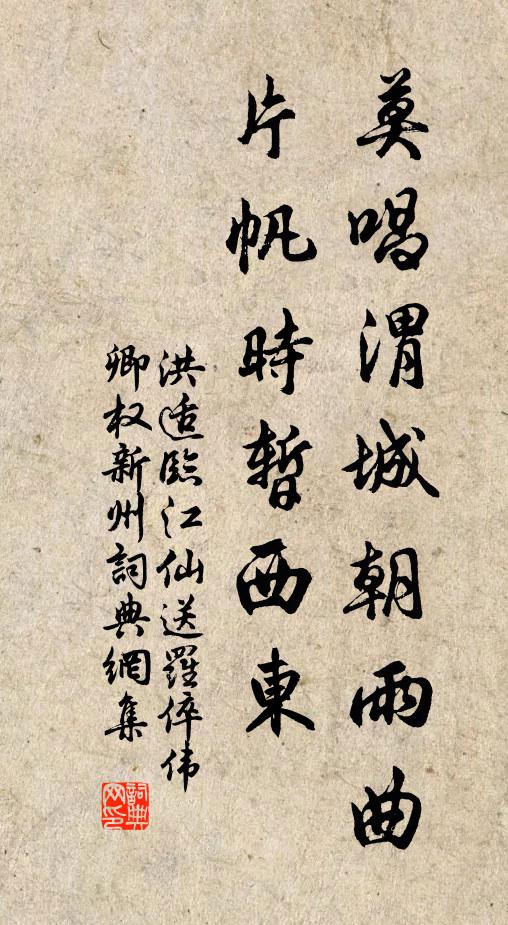 莫唱渭城朝雨曲
片帆時暫西東
洪适臨江仙送羅倅伟
卿权新州詞典網集
詞典
网印